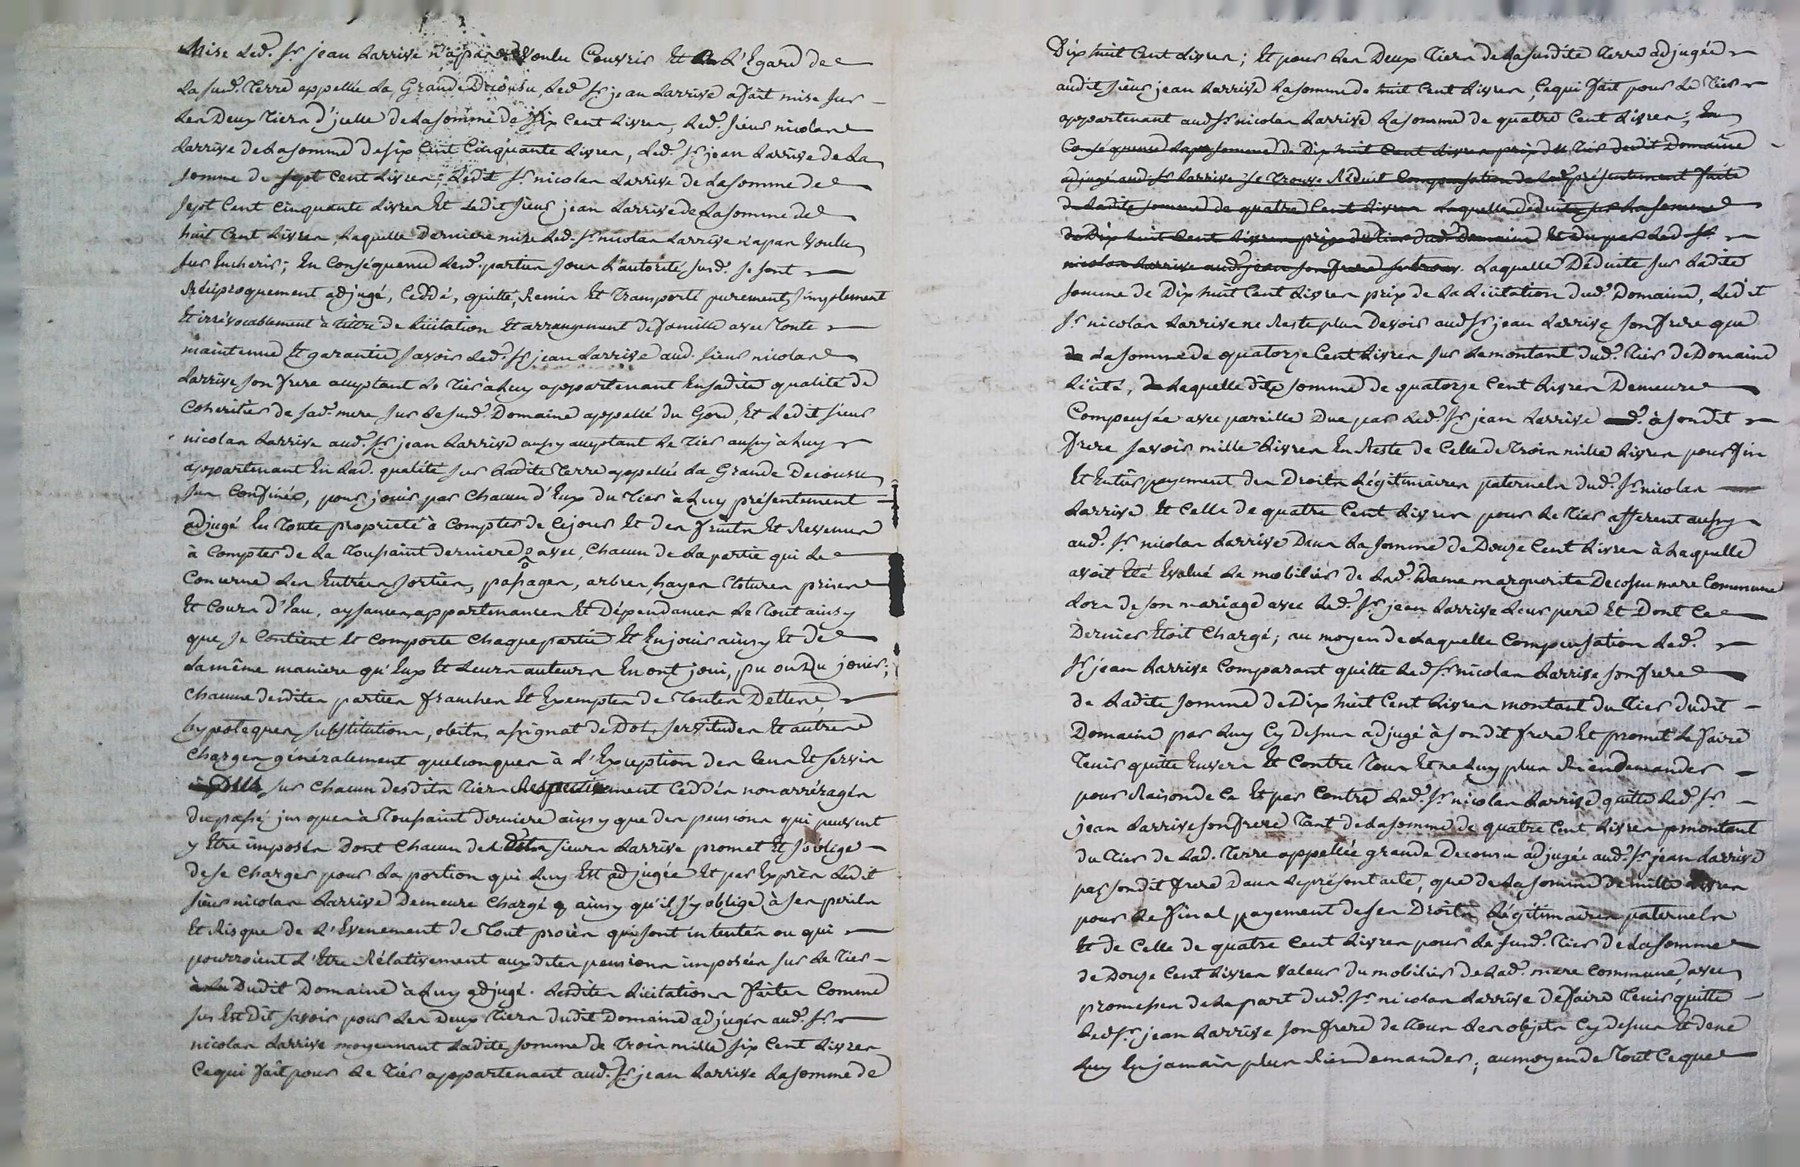 mise led. Sr jean Larrive n'a pas voulu Couvrir Et a L'Egard de
La sud. Terre appellée La Grande Decousu, Led. Sr jean Larrive a fait mise sur
Les Deux Tiers d'jcelle de La somme de six Cent Livres, Led. sieur nicolas
Larrive de La somme de six Cent Cinquante Livres, Led. Sr jean Larrive de La
somme de sept Cent Livres; Ledit Sr nicolas Larrive de La somme de
sept Cent Cinquante Livres Et Ledit sieur jean Larrive de La somme de
huit Cent Livres, Laquelle Derniere mise Led. Sr nicolas Larrive n'a pas voulu
sur Encherir; En Conséquence Lesd. parties sous L'autorité susd. se sont
Réciproquement adjugé, Ceddé, quitté, Remis Et Transporté purement, simplement
Et irrévocablement à tittre de Licitation Et arrangement de famille avec Toute
maintenue Et garantie savoir Led. Sr jean Larrive aud. sieur nicolas
Larrive son frere acceptant Le Tier à Luy appartenant En sadite qualité de
Coheritier de sad. mere, sur Le susd. Domaine appellé du Gord, Et Ledit sieur
nicolas Larrive aud. Sr jean Larrive aussy acceptant Le Tier aussy à Luy
appartenant En Lad. qualité sur Ladite Terre appellée La Grande Decousu
sus Confinés, pour jouir par Chacun d'Eux du Tier à Luy présentement
adjugé En Toute proprieté à Compter de Ce jour Et des fruits Et Revenus
à Compter de La Toussaint derniere avec, Chacun de La partie qui Le
Concerne Les Entrées, sorties, passages, arbres, hayes Clotures prises
Et Cours d'Eau, aysances, appartenances Et Dépendances Le Tout ainsy
que, se Contient Et Comporte Chaque partie Et En jouir ainsy Et de
La même maniere qu'Eux Et Leurs auteurs En ont joui, pu ou Du jouir;
Chacune desdites parties franches Et Exemptes de Toutes Dettes,
hypoteques, substitutions, obits, assignat de Dot, servitudes Et autres
Charges généralement quelconques à L'Exception des Cens Et servis
sur Chacun desdits Tiers Respectivement Ceddés non arréragés
du passé jusques à Toussaint derniere ainsy que des pensions qui peuvent
y Etre imposés Dont Chacun desdits sieurs Larrive promet Et s'oblige
de se Charger pour La portion qui Luy Est adjugée Et par Exprès Ledit
sieur nicolas Larrive Demeure Chargé ainsy qu'il s'y oblige à ses perils
Et Risque de L'Evenement de Tout procès qui sont intentés ou qui
pourroient L'Etre Rélativement auxdites pensions imposées sur Le Tier
Dudit Domaine à Luy adjugé. Lesdites Licitations faites Comme
sus Est Dit savoir pour Les Deux Tiers dudit Domaine adjugés aud. Sr
nicolas Larrive moyennant Ladite somme de Trois mille six Cent Livres
Ce qui fait pour Le Tier appartenant aud. Sr jean Larrive La somme de
Dix huit Cent Livres; Et pour Les Deux Tiers de La susdite Terre adjugée
audit sieur jean Larrive La somme de huit Cent Livres, Ce qui fait pour Le Tier
appartenant aud. Sr nicolas Larrive La somme de quatre Cent Livres; En
Conséquence La somme de Dix huit Cent Livres prix du Tier dudit Domaine
adjugé aud. Sr Larrive se Trouve Réduit Compensation de présentement faite
de Ladite somme de quatre Cent Livres Laquelle déduite sur La somme
de Dix huit Cent Livres prix du Tier dud. Domaine Et du par Led. Sr
nicolas Larrive aud. jean son frere Laquelle Déduite sur Ladite
somme de Dix huit Cent Livres prix de La Licitation dud. Domaine, Ledit
Sr nicolas Larrive ne Reste plus Devoir aud. Sr jean Larrive son frere que
La somme de quatorze Cent Livres sur Le montant dud. Tier de Domaine
Licité, Laquelle dite somme de quatorze Cent Livres Demeure
Compensée avec pareille Due par Led. Sr jean Larrive à son dit
frere savoir mille Livres En Reste de Celle de Trois mille Livres pour fin
Et Entier payement des Droits Légitimaires paternels dud. Sr nicolas
Larrive Et Celle de quatre Cent Livres pour Le Tier afferent aussy
aud. Sr nicolas Larrive Dans La somme de Douze Cent Livres à Laquelle
avoit Eté Evalué Le mobilier de Lad. Dame marguerite Decossu mere Commune
Lors de son mariage avec Led. Sr jean Larrive Leur pere Et Dont Ce
Dernier Etoit Chargé; au moyen de Laquelle Compensation Led.
Sr jean Larrive Comparant quitte Led. Sr nicolas Larrive son frere
de Ladite somme de Dix huit Cent Livres montant du Tier dudit
Domaine par Luy Cy Dessus adjugé à son dit frere Et promet Le faire
Tenir quitte Envers Et Contre Tous Et ne Luy plus Rien demander
pour Raison de Ce Et par Contre Led. Sr nicolas Larrive quitte Led. Sr
jean Larrive son frere Tant de La somme de quatre Cent Livres montant
du Tier de Lad. Terre appellée grande Decousu adjugée aud. Sr jean Larrive
par son dit frere Dans Le présent acte, que de La somme de mille Livres
pour Le final payement de ses Droits Légitimaires paternels
Et de Celle de quatre Cent Livres pour Le susd. Tier de La somme
de Douze Cent Livres valeur du mobilier de Lad. mere Commune, avec
promesses de La part dud. Sr nicolas Larrive de faire Tenir quitte
Led. Sr jean Larrive son frere de Tous Les objets Cy dessus Et de ne
Luy En jamais plus Rien demander; au moyen de Tout Ce que